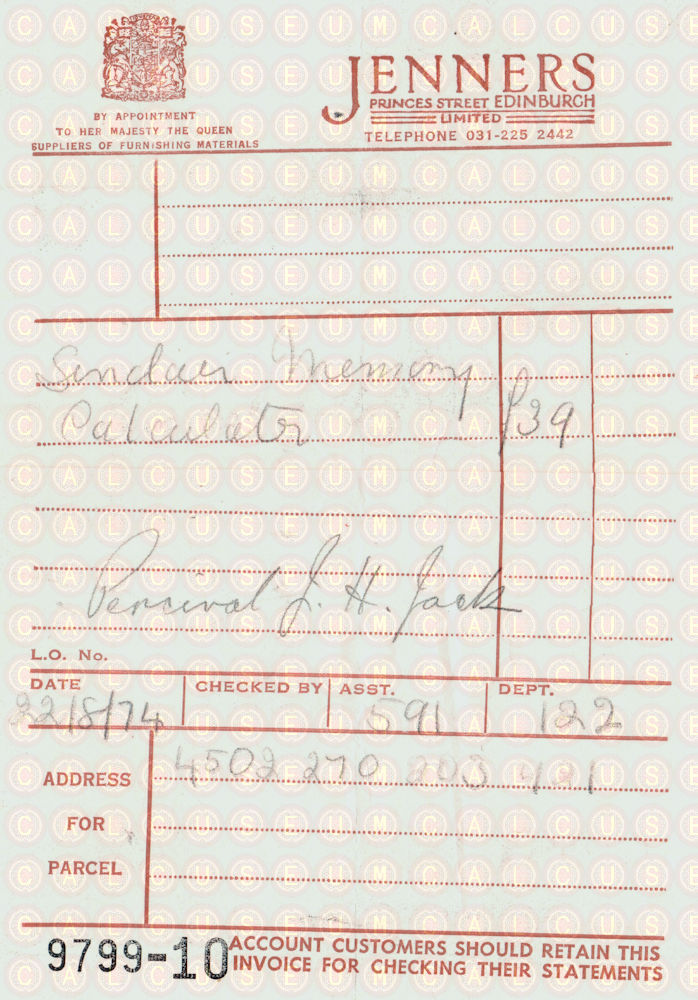 BY APPOINTMENT
TO HER MAJESTY THE QUEEN
SUPPLIERS OF FURNISHING MATERIALS
JENNERS
PRINCES STREET EDINBURGH
LIMITED
TELEPHONE 031-225 2442
Sinclair Memory
Calculator £39
Percival J. H. Jack
L.O. No.
DATE CHECKED BY ASST. DEPT.
22/8/74 591 122
ADDRESS
FOR
PARCEL
4502 270
9799-10
ACCOUNT CUSTOMERS SHOULD RETAIN THIS
INVOICE FOR CHECKING THEIR STATEMENTS